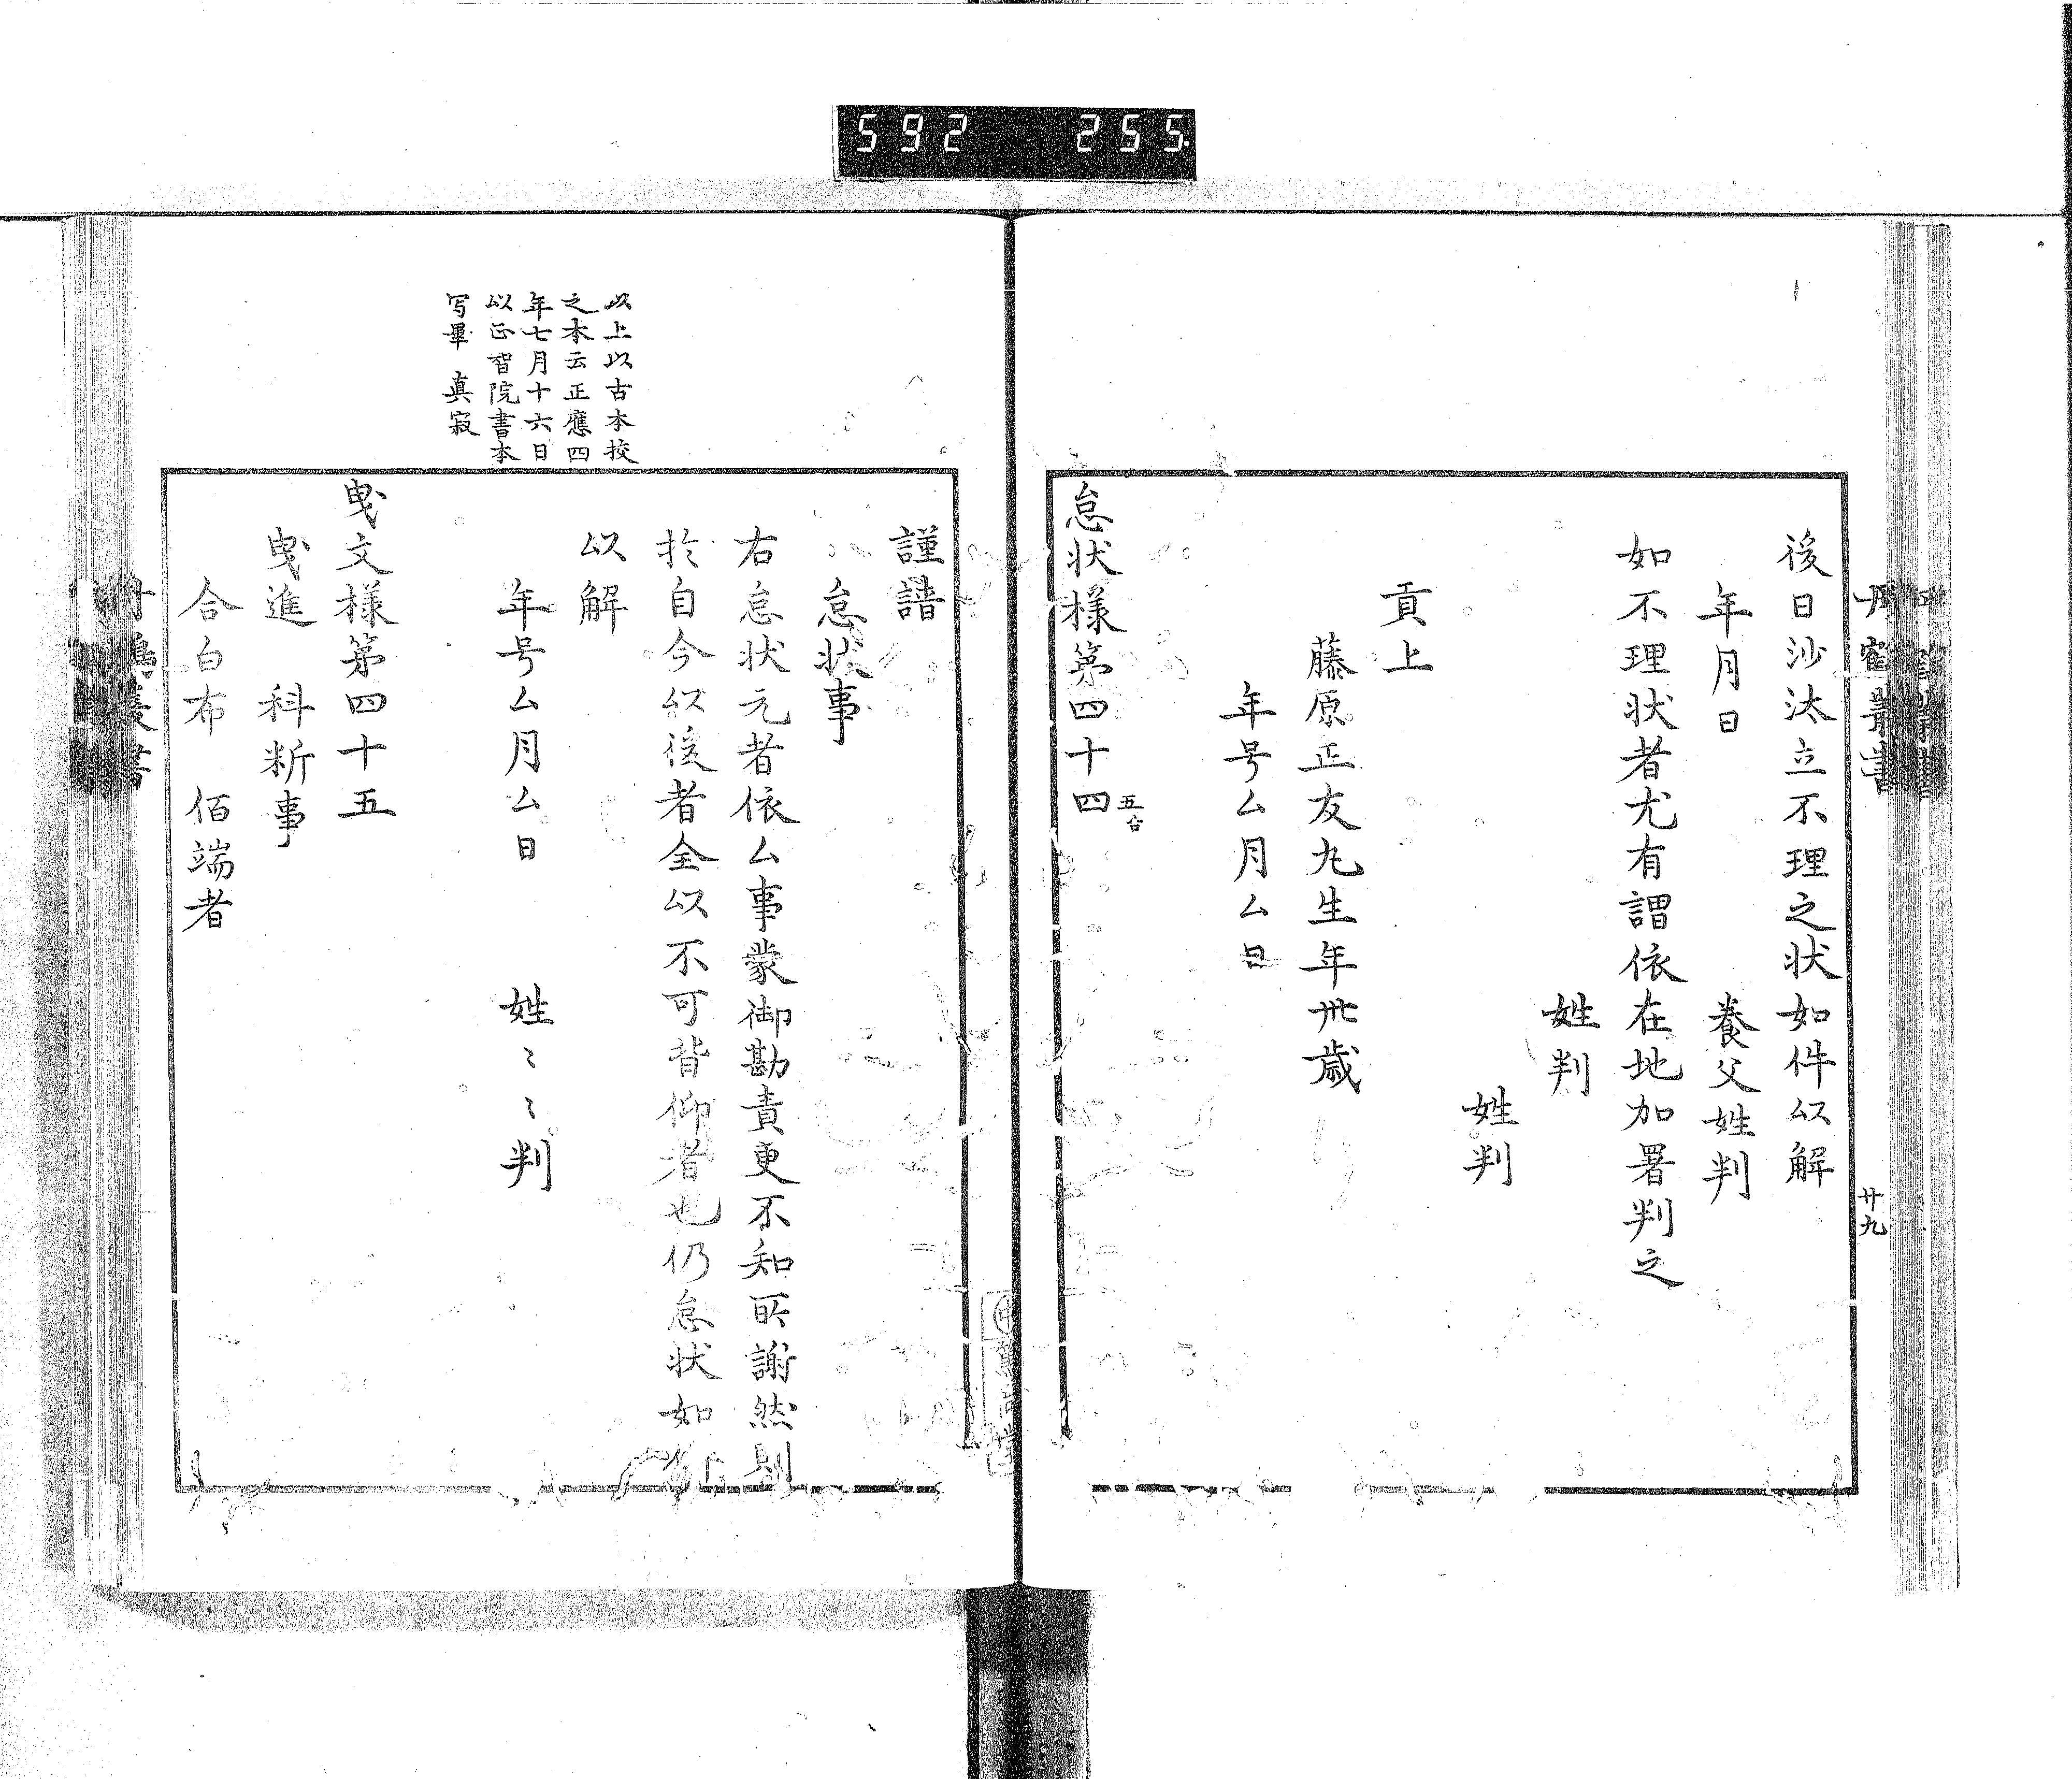 592 255.
丹鶴叢書
廿九
後日沙汰立不理之状如件以解
年月日 養父姓判
如不理状者尤有謂依在地加署判之
姓判
姓判
貢上
藤原正友丸生年卅歳
年号厶月厶日
怠状様第四十四
謹請
怠状事
右怠状元者依厶事蒙御勘責更不知所謝然則
於自今以後者全以不可背仰者也仍怠状如件
以解
年号厶月厶日 姓〻〻判
曳文様第四十五
曳進 科断事
合白布 佰端者
以上以古本挍
之本云正應四
年七月十六日
以正智院書本
写畢 真寂